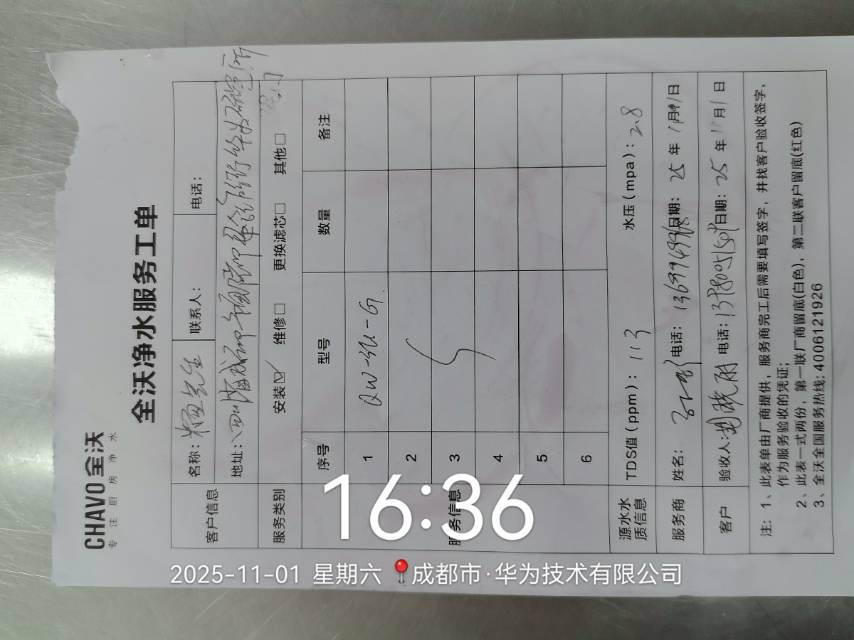 CHAVO全沃
专注厨房净水
全沃净水服务工单
客户信息
名称: 先生 联系人: 电话:
地址:
服务类别 安装☑ 维修□ 更换滤芯□ 其他□
服务信息
序号 型号 数量 备注
1 QW-SU-G
2
3
4
5
6
源水水质信息 TDS值(ppm): 113 水压(mpa): 2.8
服务商 姓名: 电话: 日期: 25年11月1日
客户 验收人: 电话: 日期: 25年11月1日
注: 1、此表单由厂商提供, 服务商完工后需要填写签字, 并找客户验收签字,
作为服务验收的凭证;
2、此表一式两份, 第一联厂商留底(白色), 第二联客户留底(红色)
3、全沃全国服务热线: 4006121926
16:36
2025-11-01 星期六 成都市·华为技术有限公司